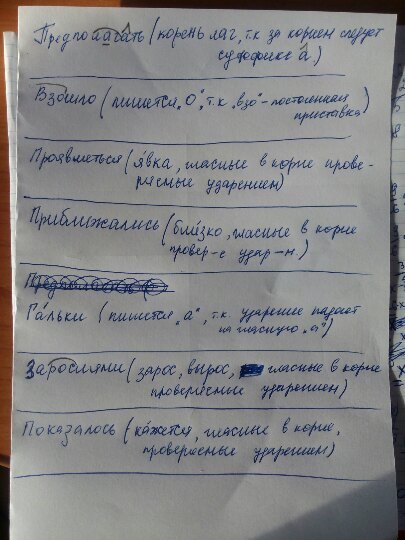 Предполагать (корень лаг, т.к за корнем следует
суффикс а)
Взошло (пишется „О", т.к. „взо"-постоянная
приставка)
Проявляться (я́вка, гласные в корне прове-
ряемые ударением)
Приближались (бли́зко, гласные в корне
провер-е удар-м.)
Га́льки (пишется „а", т.к. ударение падает
на гласную „а")
Зарослями (зарос, вырос, гласные в корне
проверяемые ударением)
Показалось (ка́жется, гласные в корне,
проверяемые ударением)